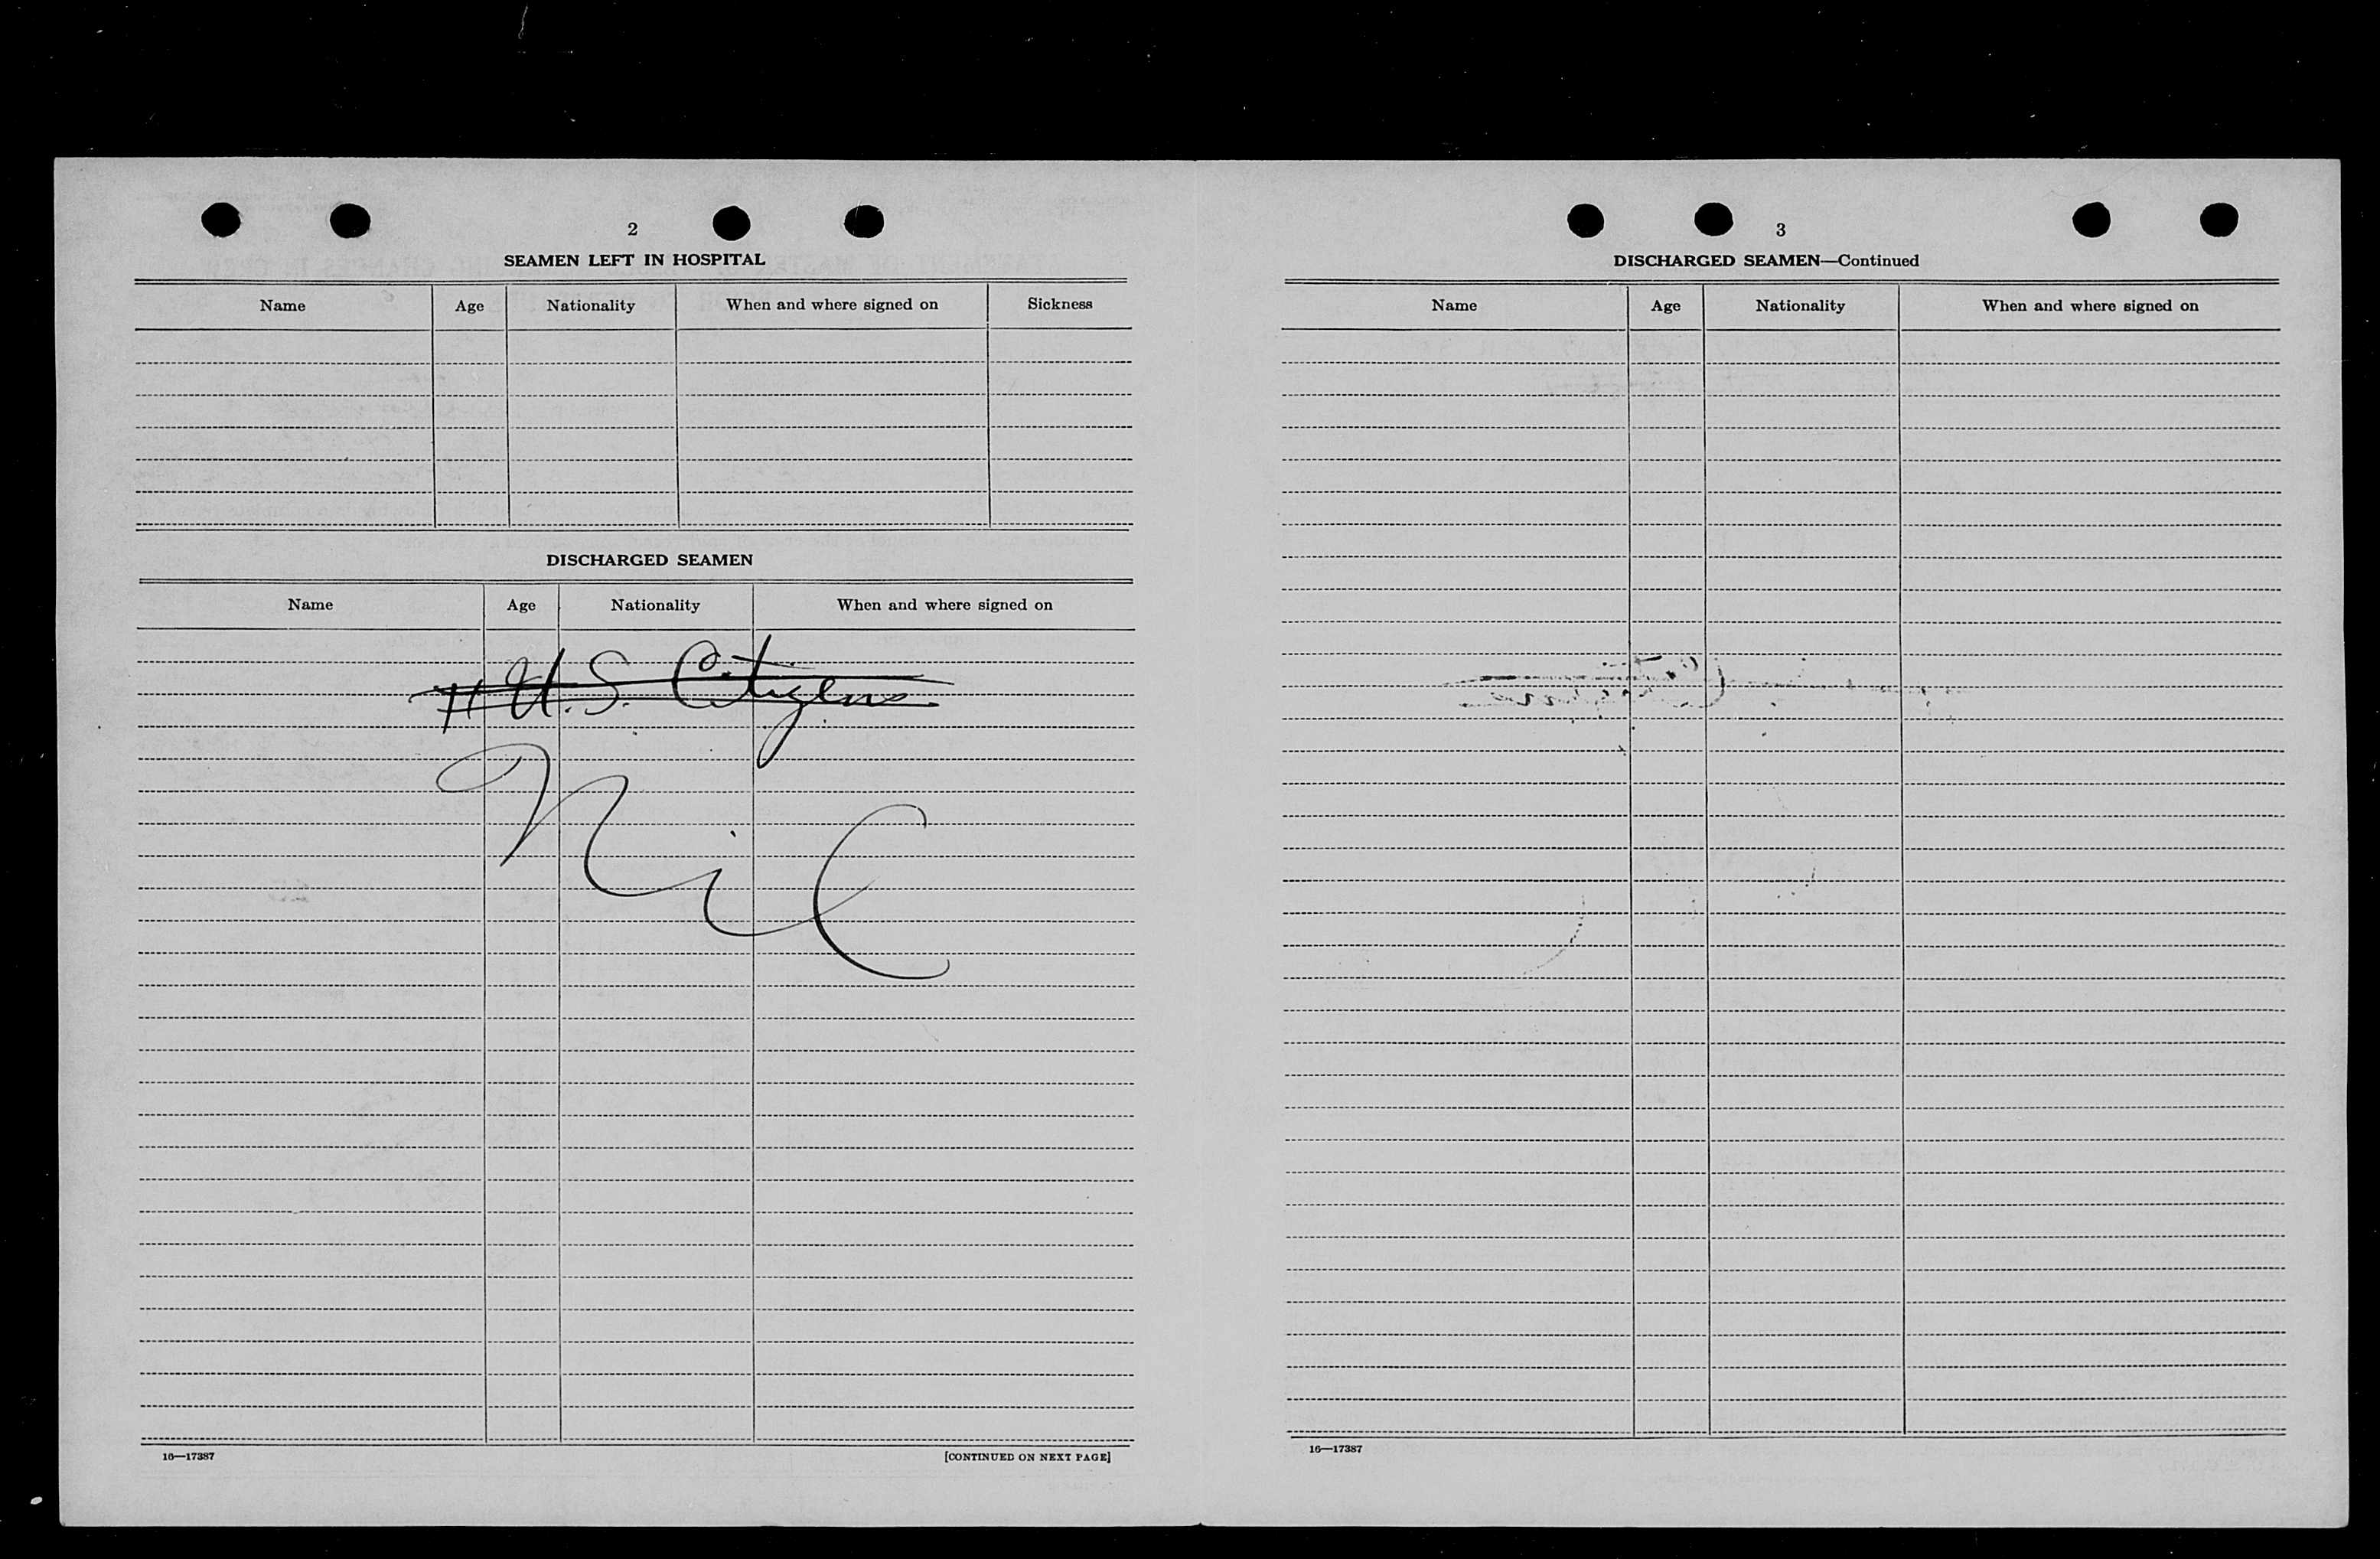 2
SEAMEN LEFT IN HOSPITAL
Name Age Nationality When and where signed on Sickness
DISCHARGED SEAMEN
Name Age Nationality When and where signed on
U.S. Citizens
Nil
16—17387 [CONTINUED ON NEXT PAGE]
3
DISCHARGED SEAMEN—Continued
Name Age Nationality When and where signed on
16—17387